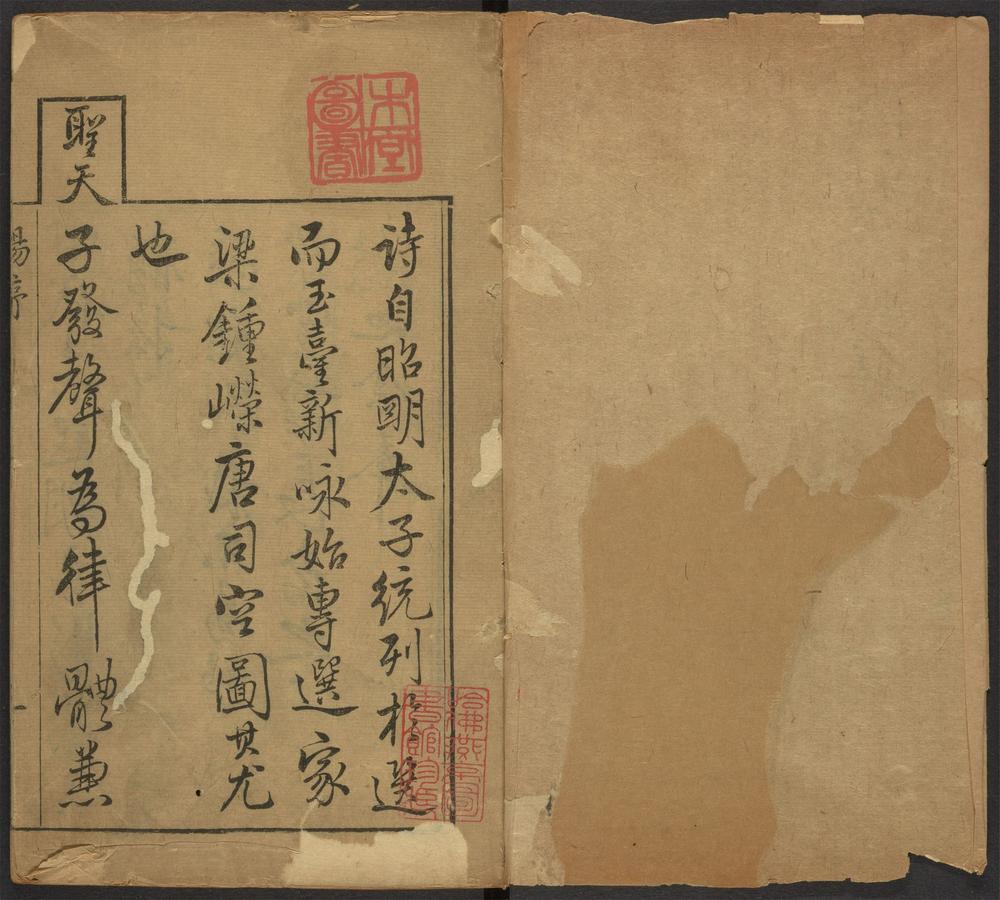 詩自昭明太子統列於選
而玉臺新咏始專選家
梁鍾嶸唐司空圖其尤
也
聖天子發聲為律體兼